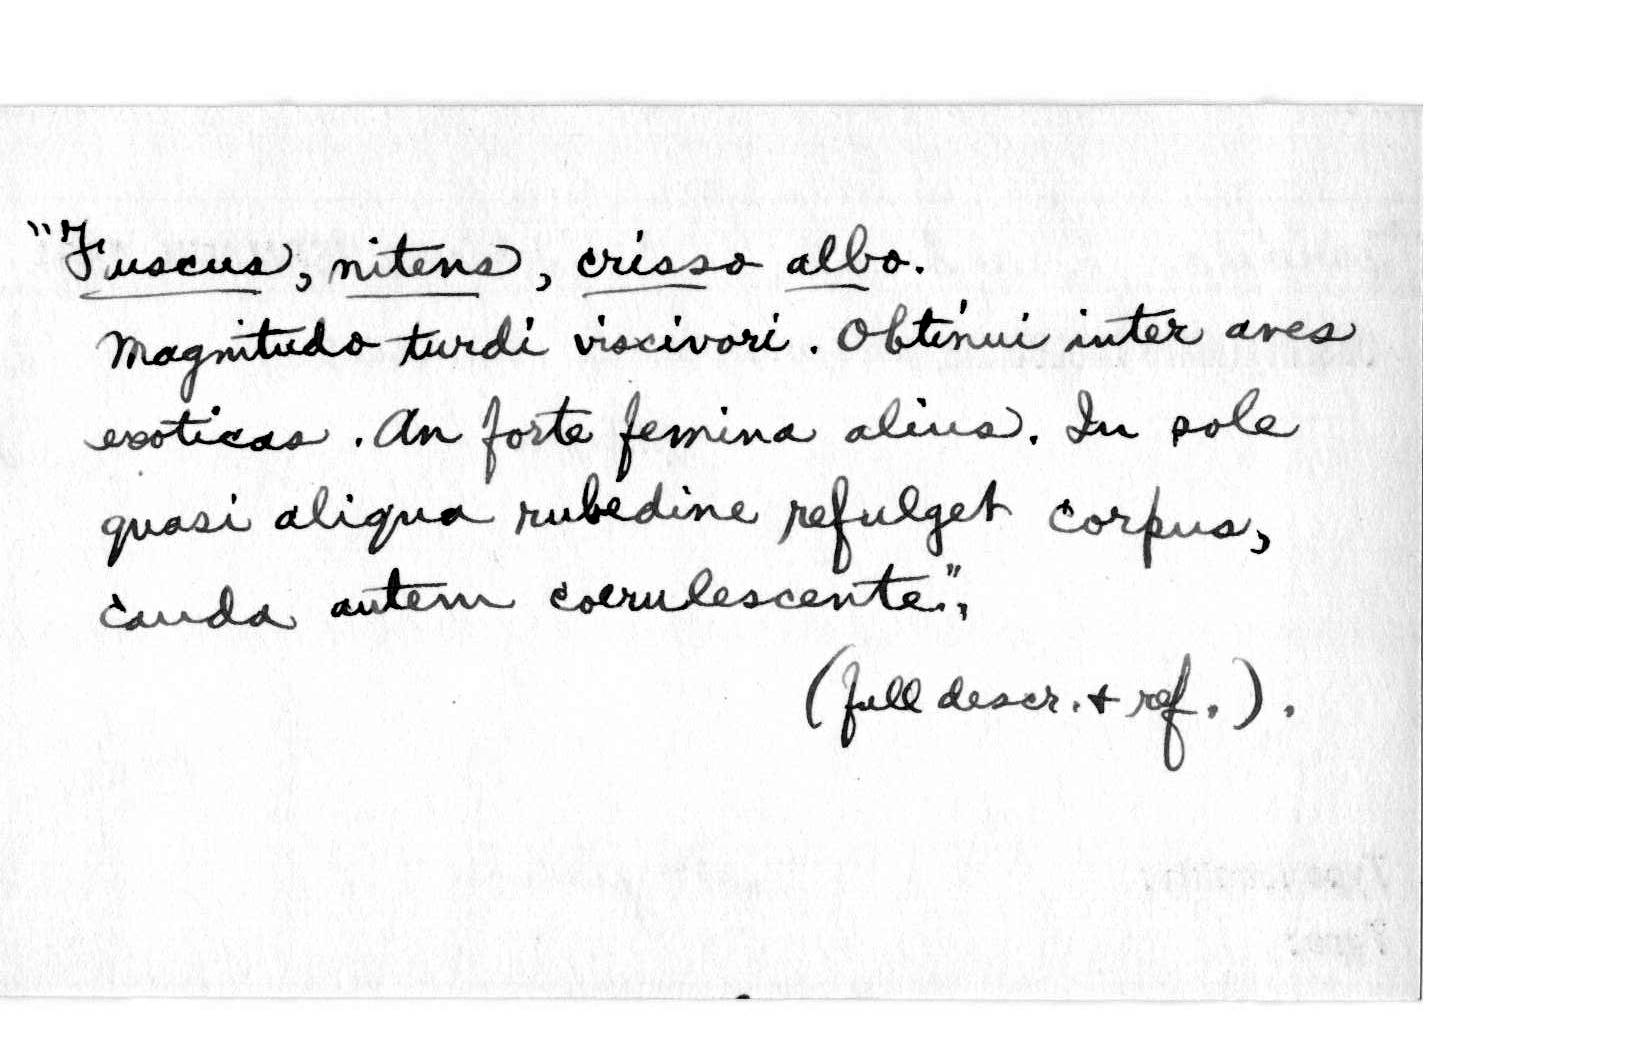 "Fuscus, nitens, crisso albo.
Magnitudo turdi viscivori. Obtinui inter aves
exoticas. An forte femina alius. In sole
quasi aliqua rubedine refulget corpus,
cauda autem coerulescente.",
(full descr. + ref.).